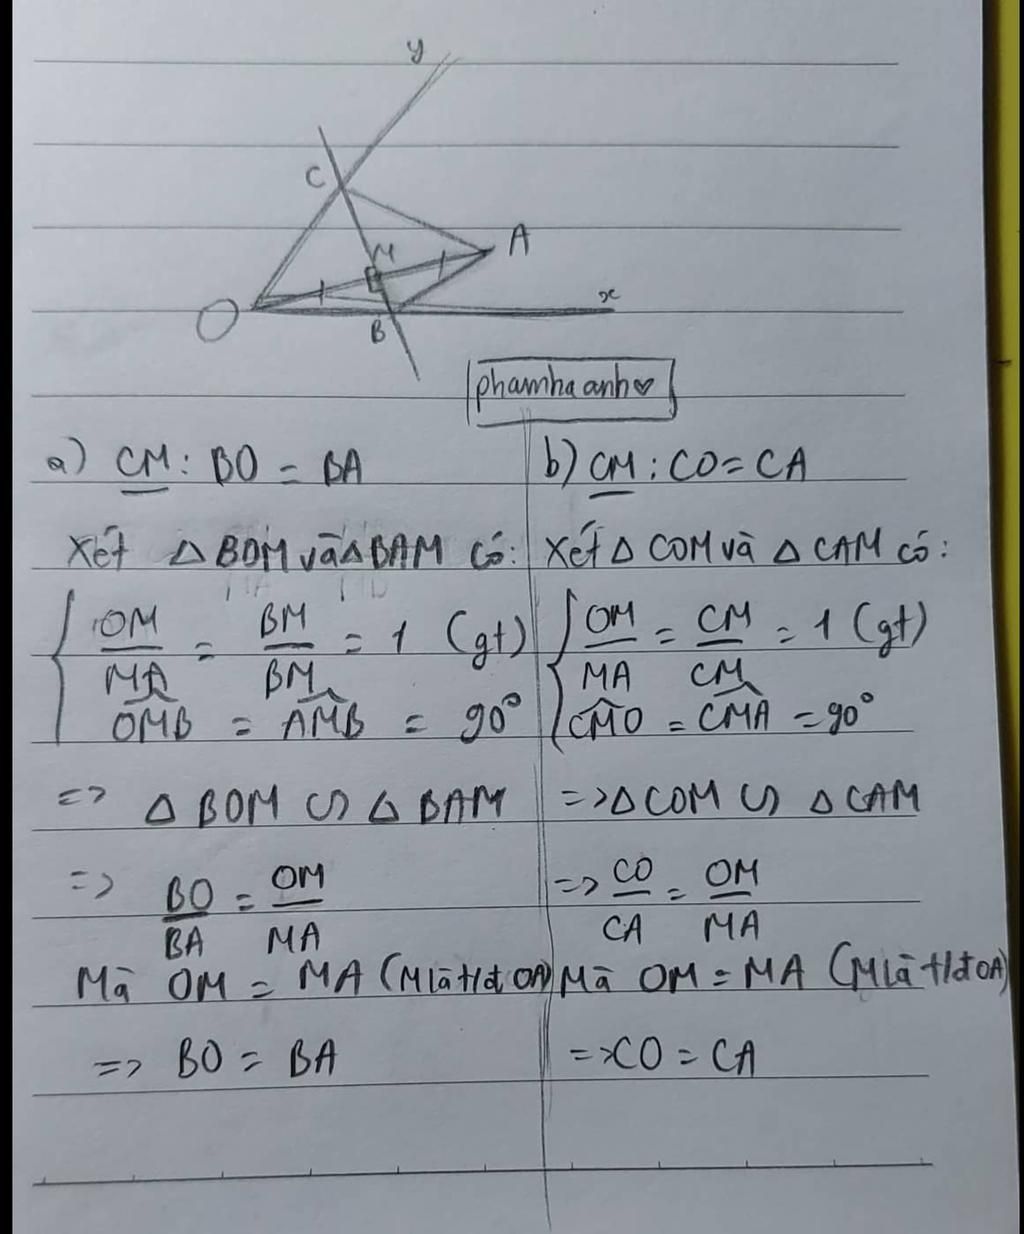 y
C
A
M
x
O
B
phamhaanh♥
a) CM: BO = BA
Xét △ BOM và △ BAM có:
OM/MA = BM/BM = 1 (gt)
OMB = AMB = 90°
=> △ BOM ∽ △ BAM
=> BO/BA = OM/MA
Mà OM = MA (M là t/đ OA)
=> BO = BA
b) CM: CO = CA
Xét △ COM và △ CAM có:
OM/MA = CM/CM = 1 (gt)
CMO = CMA = 90°
=> △ COM ∽ △ CAM
=> CO/CA = OM/MA
Mà OM = MA (M là t/đ OA)
=> CO = CA